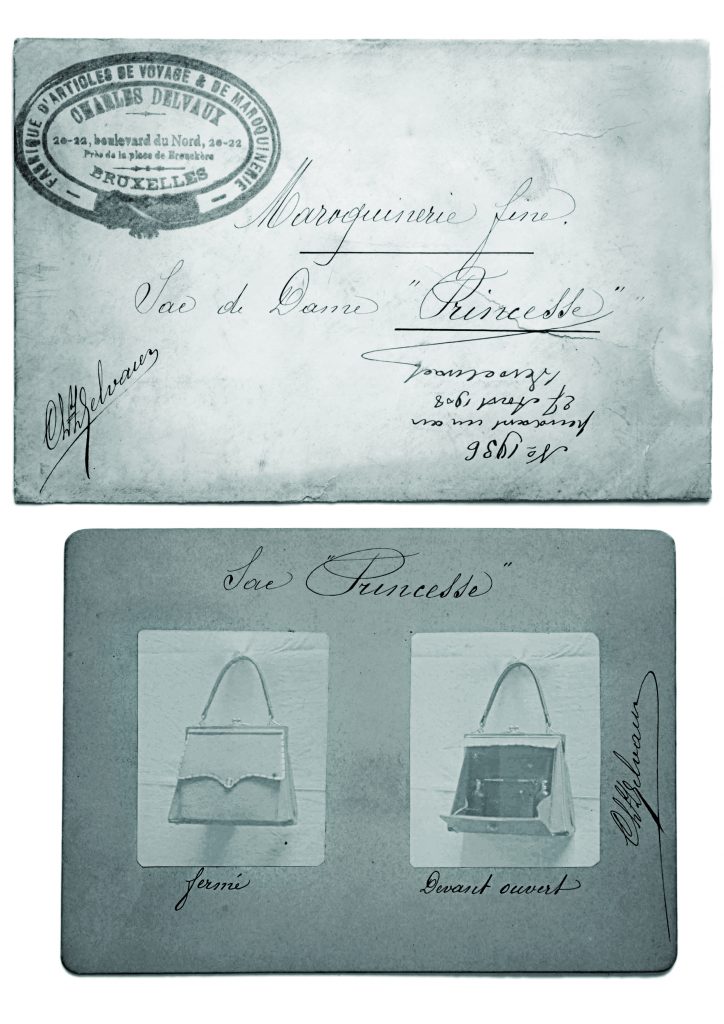 FABRIQUE D'ARTICLES DE VOYAGE & DE MAROQUINERIE
CHARLES DELVAUX
20-22, boulevard du Nord, 20-22
Près de la place de Brouckère
BRUXELLES
Maroquinerie fine.
Sac de Dame "Princesse"
Ch. Delvaux
No 1936
pendant un an
27 Aout 1908
Sac "Princesse"
fermé
Devant ouvert
Ch. Delvaux